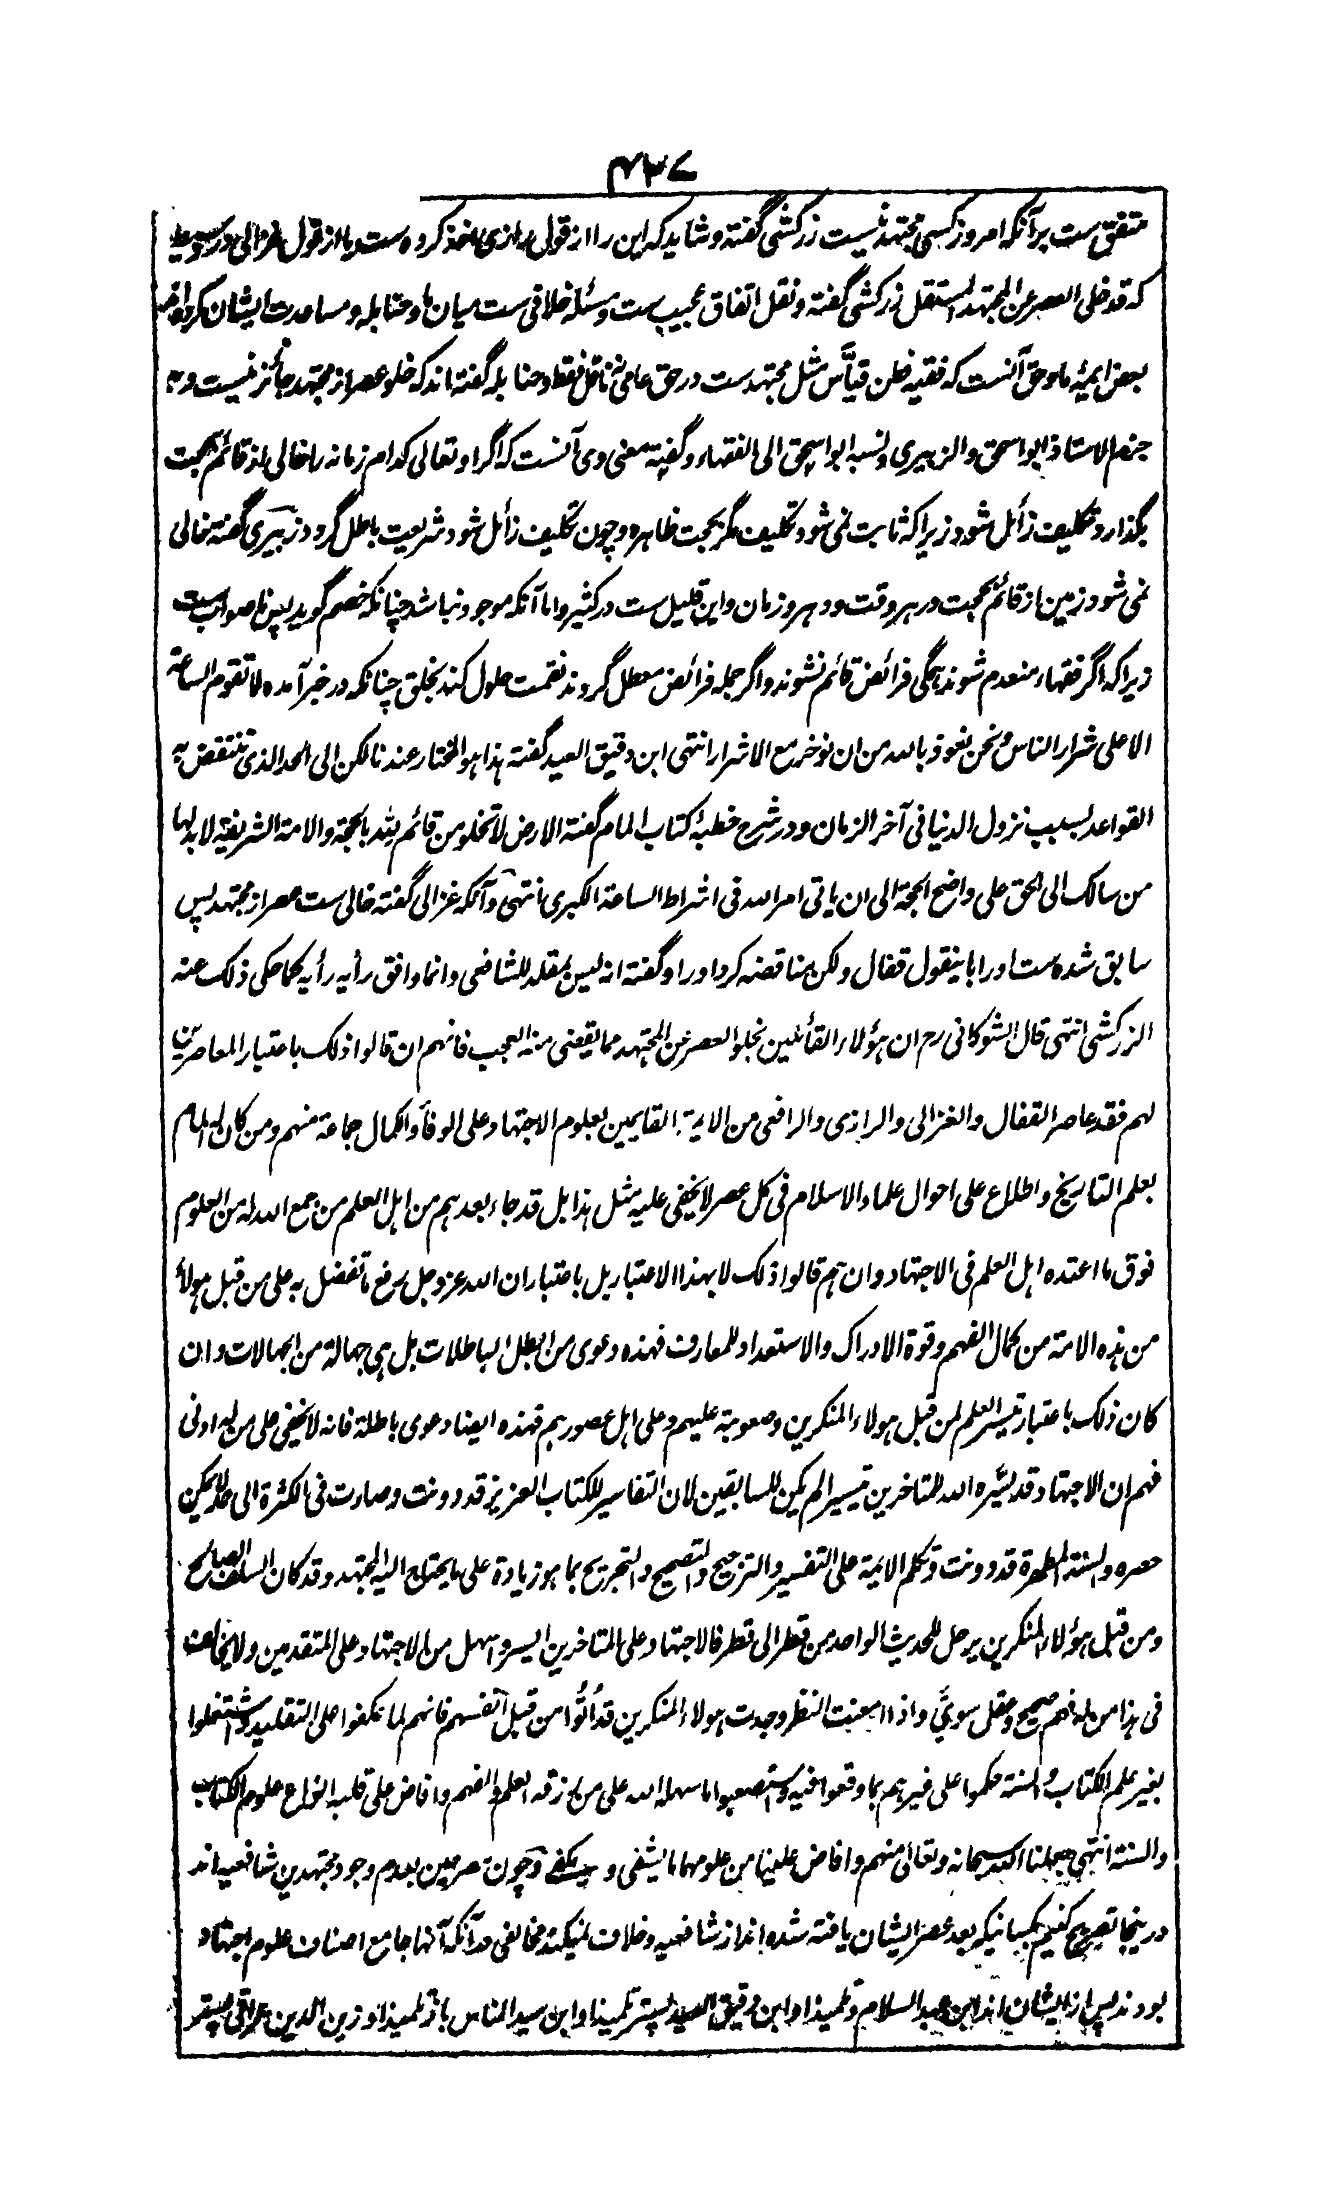 ۴۳۷
متفق ست برآنکه امروز کسی مجتهد نیست زرکشی گفته و شاید که این را از قول رازی اخذ کرده ست و یا از قول غزالی در وسیط
که قد خلی العصر عن المجتهد المستقل زرکشی گفته و نقل اتفاق عجیب ست و مسئله خلافی ست میان ما و حنابله و مساعدت ایشان کرده اند
بعض ایمهٔ ما و حق آنست که فقیه فطن قیّاس مثل مجتهدست در حق عامی نه ناقل فقط و حنابله گفته اند که خلو عصر از مجتهد جائز نیست و به
جزم الاستاذ ابو اسحق والزبیری و نسبه ابو اسحق الی الفقهاء و گفته معنی وی آنست که اگر او تعالی کدام زمانه را خالی از قائم بحجت
بگذارد تکلیف زائل شود زیرا که ثابت نمی شود تکلیف مگر بحجت ظاهره و چون تکلیف زائل شود شریعت باطل گردد زبیری گفته خالی
نمی شود زمین از قائم بحجت در هر وقت و دهر و زمان و این قلیل ست در کثیر و اما آنکه موجود نباشد چنانکه خصم گوید پس ناصواب ست
زیرا که اگر فقهاء منعدم شوند همگی فرائض قائم نشوند و اگر جمله فرائض معطل گردند نقمت حلول کند بخلق چنانکه در خبر آمده لا تقوم الساعة
الا علی شرار الناس و نحن نعوذ بالله من ان نوخر مع الاشرار انتهی ابن دقیق العید گفته هذا هو المختار عندنا لکن الی الحد الذی تنتقض به
القواعد بسبب نزول الدنیا فی آخر الزمان و در شرح خطبهٔ کتاب المام گفته الارض لا تخلو من قائم لله بالحجة والامة الشریفة لا بد لها
من سالک الی الحق علی واضح الحجة الی ان یاتی امر الله فی اشراط الساعة الکبری انتهی و آنکه غزالی گفته خالی ست عصر از مجتهد پس
سابق شده ست او را باینقول قفال و لکن مناقضه کرد او را و گفته انه لیس بمقلد للشافعی وانما وافق رأیه رأیه کما حکی ذلک عنه
الزرکشی انتهی قال الشوکانی رح ان هؤلاء القائلین بخلو العصر عن المجتهد مما یقضی منه العجب فانهم ان قالوا ذلک باعتبار المعاصرین
لهم فقد عاصر القفال والغزالی والرازی والرافعی من الایة القایمین بعلوم الاجتهاد علی الوفاء والکمال جماعة منهم ومن کان له المام
بعلم التاریخ واطلاع علی احوال علماء الاسلام فی کل عصر لا یخفی علیه مثل هذا بل قد جاء بعدهم من اهل العلم من جمع الله له من العلوم
فوق ما اعتده اهل العلم فی الاجتهاد وان هم قالوا ذلک لا بهذا الاعتبار بل باعتبار ان الله عز وجل رفع ما تفضل به علی من قبل هؤلاء
من هذه الامة من کمال الفهم وقوة الادراک والاستعداد للمعارف فهذه دعوی من ابطل الباطلات بل هی جهالة من الجهالات وان
کان ذلک باعتبار تیسر العلم لمن قبل هولاء المنکرین وصعوبته علیهم وعلی اهل عصورهم فهذه ایضا دعوی باطلة فانه لا یخفی علی من له ادنی
فهم ان الاجتهاد قد یسّره الله للمتاخرین تیسیرا لم یکن للسابقین لان التفاسیر للکتاب العزیز قد دونت وصارت فی الکثرة الی حد لا یمکن
حصره والسنة المطهرة قد دونت وتکلم الایمة علی التفسیر والترجیح والتصحیح والتجریح بما هو زیادة علی ما یحتاج الیه المجتهد وقد کان السلف الصالح
ومن قبل هؤلاء المنکرین یرحل للحدیث الواحد من قطر الی قطر فالاجتهاد علی المتاخرین ایسر واسهل من الاجتهاد علی المتقدمین ولا یخالف
فی هذا من له فهم صحیح وعقل سویّ واذا امعنت النظر وجدت هولاء المنکرین قد اُتُوا من قبل انفسهم فانهم لما عکفوا علی التقلید واشتغلوا
بغیر علم الکتاب والسنة حکموا علی غیرهم بما وقعوا فیه واستصعبوا ما سهله الله علی من رزقه العلم والفهم وافاض علی قلبه انواع علوم الکتاب
والسنة انتهی جعلنا الله سبحانه وتعالی منهم وافاض علینا من علومهما ما یشفی و یکفی و چون مصرحین بعدم وجود مجتهدین شافعیه اند
درینجا تصریح کنیم بکسانیکه بعد عصر ایشان یافته شده اند از شافعیه و خلاف نمیکند مخالفی در آنکه آنها جامع اصناف علوم اجتهاد
بودند پس از ایشان اند ابن عبد السلام و تلمیذ او ابن دقیق العید پستر تلمیذ او ابن سید الناس باز تلمیذ او زین الدین عراقی پستر